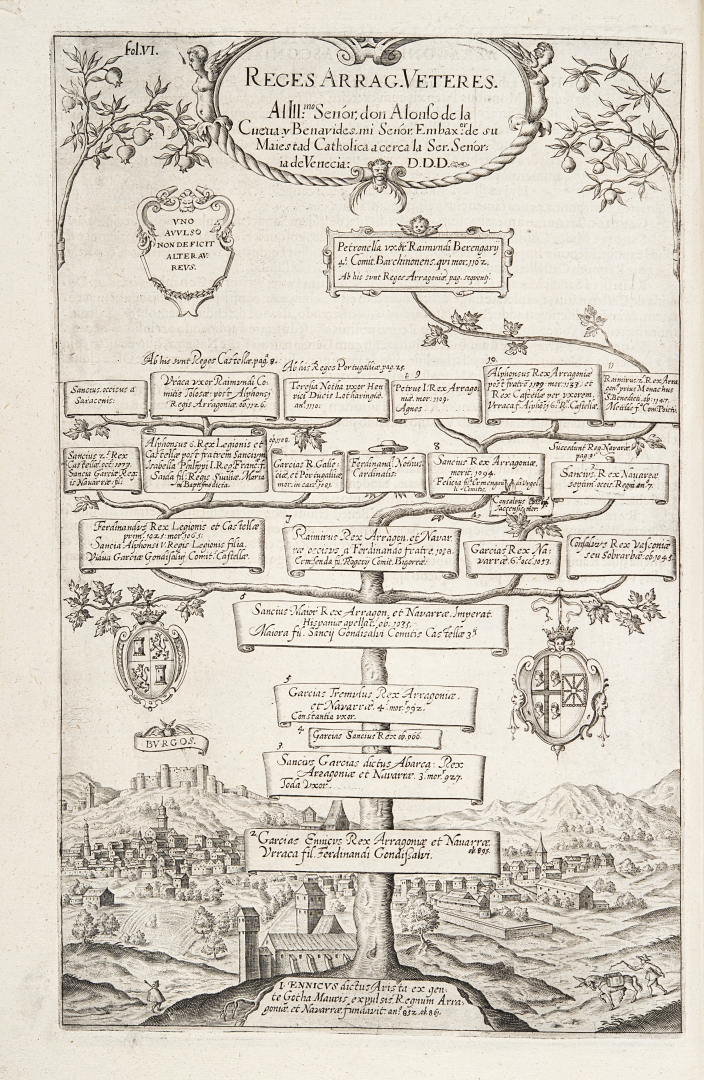 fol.VI.
REGES ARRAG. VETERES.
Al Ill.mo Señor, don Alonso de la
Cueua, y Benavides, mi Señor, Embax.or de su
Maiestad Catholica acerca la Ser. Señor:
ia de Venecia: D.D.D.
VNO
AVVLSO
NON DEFICIT
ALTER AV:
REVS.
Petronella vxor Raimundi Berengarij
4.i Comit. Barchinonens. qui mor. 1162.
Ab his sunt Reges Arragoniæ, pag. sequenti.
Ab his sunt Reges Castellæ, pag. 8.
Ab his Reges Portugaliæ, pag. 25.
Sancius occisus a
Saracenis.
Vraca vxor Raimundi Co:
mitis Tolosæ: post Alphonsi
Regis Arragoniæ. ob. 1126.
Teresia Notha vxor Hen
rici Ducis Lotharingiæ.
an. 1110.
9
Petrus I. Rex Arragon
iæ. mor. 1109.
Agnes
10.
Alphonsus Rex Arragoniæ
post fratrē 1109. mor. 1133. et
Rex Castellæ per vxorem.
Vrraca f. Alphōsi 6. R. Castellæ.
11
Raimirus 2. Rex Arra
gon. prius Monachus
S. Benedicti. ob. 1147.
Metildis f. Com. Pictav.
Sancius 2.s Rex
Castellæ. occ. 1077.
Sancia Garciæ Reg:
is Navarræ fil.
Alphonsus 6. Rex Legionis et
Castellæ post fratrem Sancium
Isabella Philippi I. Reg. Franc. f.
Saida fil. Regis Siuiliæ. Maria
in Baptis. dicta.
ob. 1108.
Garcias R. Galle:
ciæ, et Portugaliæ
mor. in carc. 1081.
Ferdinand. Nothus
Cardinalis.
8
Sancius Rex Arragoniæ,
morit. 1094.
Felicia f. Ermengardi di Vrgel:
li Comitis.
Succedunt Reg. Navaræ,
pag. 9.
Sancius Rex Navaræ
septim. occis. Regn. an. 7.
Consaluus
Jaccensis
Ferdinandus Rex Legionis et Castellæ
prim. 1025. mor. 1065.
Sancia Alphonsi V. Regis Legionis filia.
Vidua Garciæ Gondisalui Comit. Castellæ.
7
Raimirus Rex Arragon. et Navar.
ræ occisus a Ferdinando fratre. 1058.
Comsenda fi. Rogerij Comit. Bigorræ.
Garcias Rex Na:
varræ. 6.s occ. 1053.
Consaluus Rex Vasconiæ
seu Sobrarbæ. ob. 1045.
6
Sancius Maior Rex Arragon. et Navarræ, Imperat.
Hispaniæ apellat. ob. 1035.
Maiora fil. Sancij Gondisalvi Comitis Castellæ 3.ii
5
Garcias Tremulus Rex Arragoniæ.
et Navarræ. 4.s mor. 992.
Constantia vxor.
4
Garcias Sancius Rex ob. 966.
3
Sancius Garcias dictus Abarca: Rex
Arragoniæ et Navaræ. 3. mor. 927.
Toda Vxor.
BVRGOS.
2
Garcias Ennicus Rex Arragoniæ et Navarræ.
ob. 891.
Vrraca fil. Ferdinandi Gondissalvi.
I. ENNICVS dictus Arista ex gen:
te Gotha Mauris expulsis Regnum Arra:
goniæ et Navarræ fundavit: an. 852. ob. 86